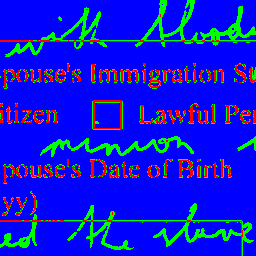 with blood
pouse's Immigration S
itizen Lawful Per
minion
pouse's Date of Birth
yy)
ed the slave